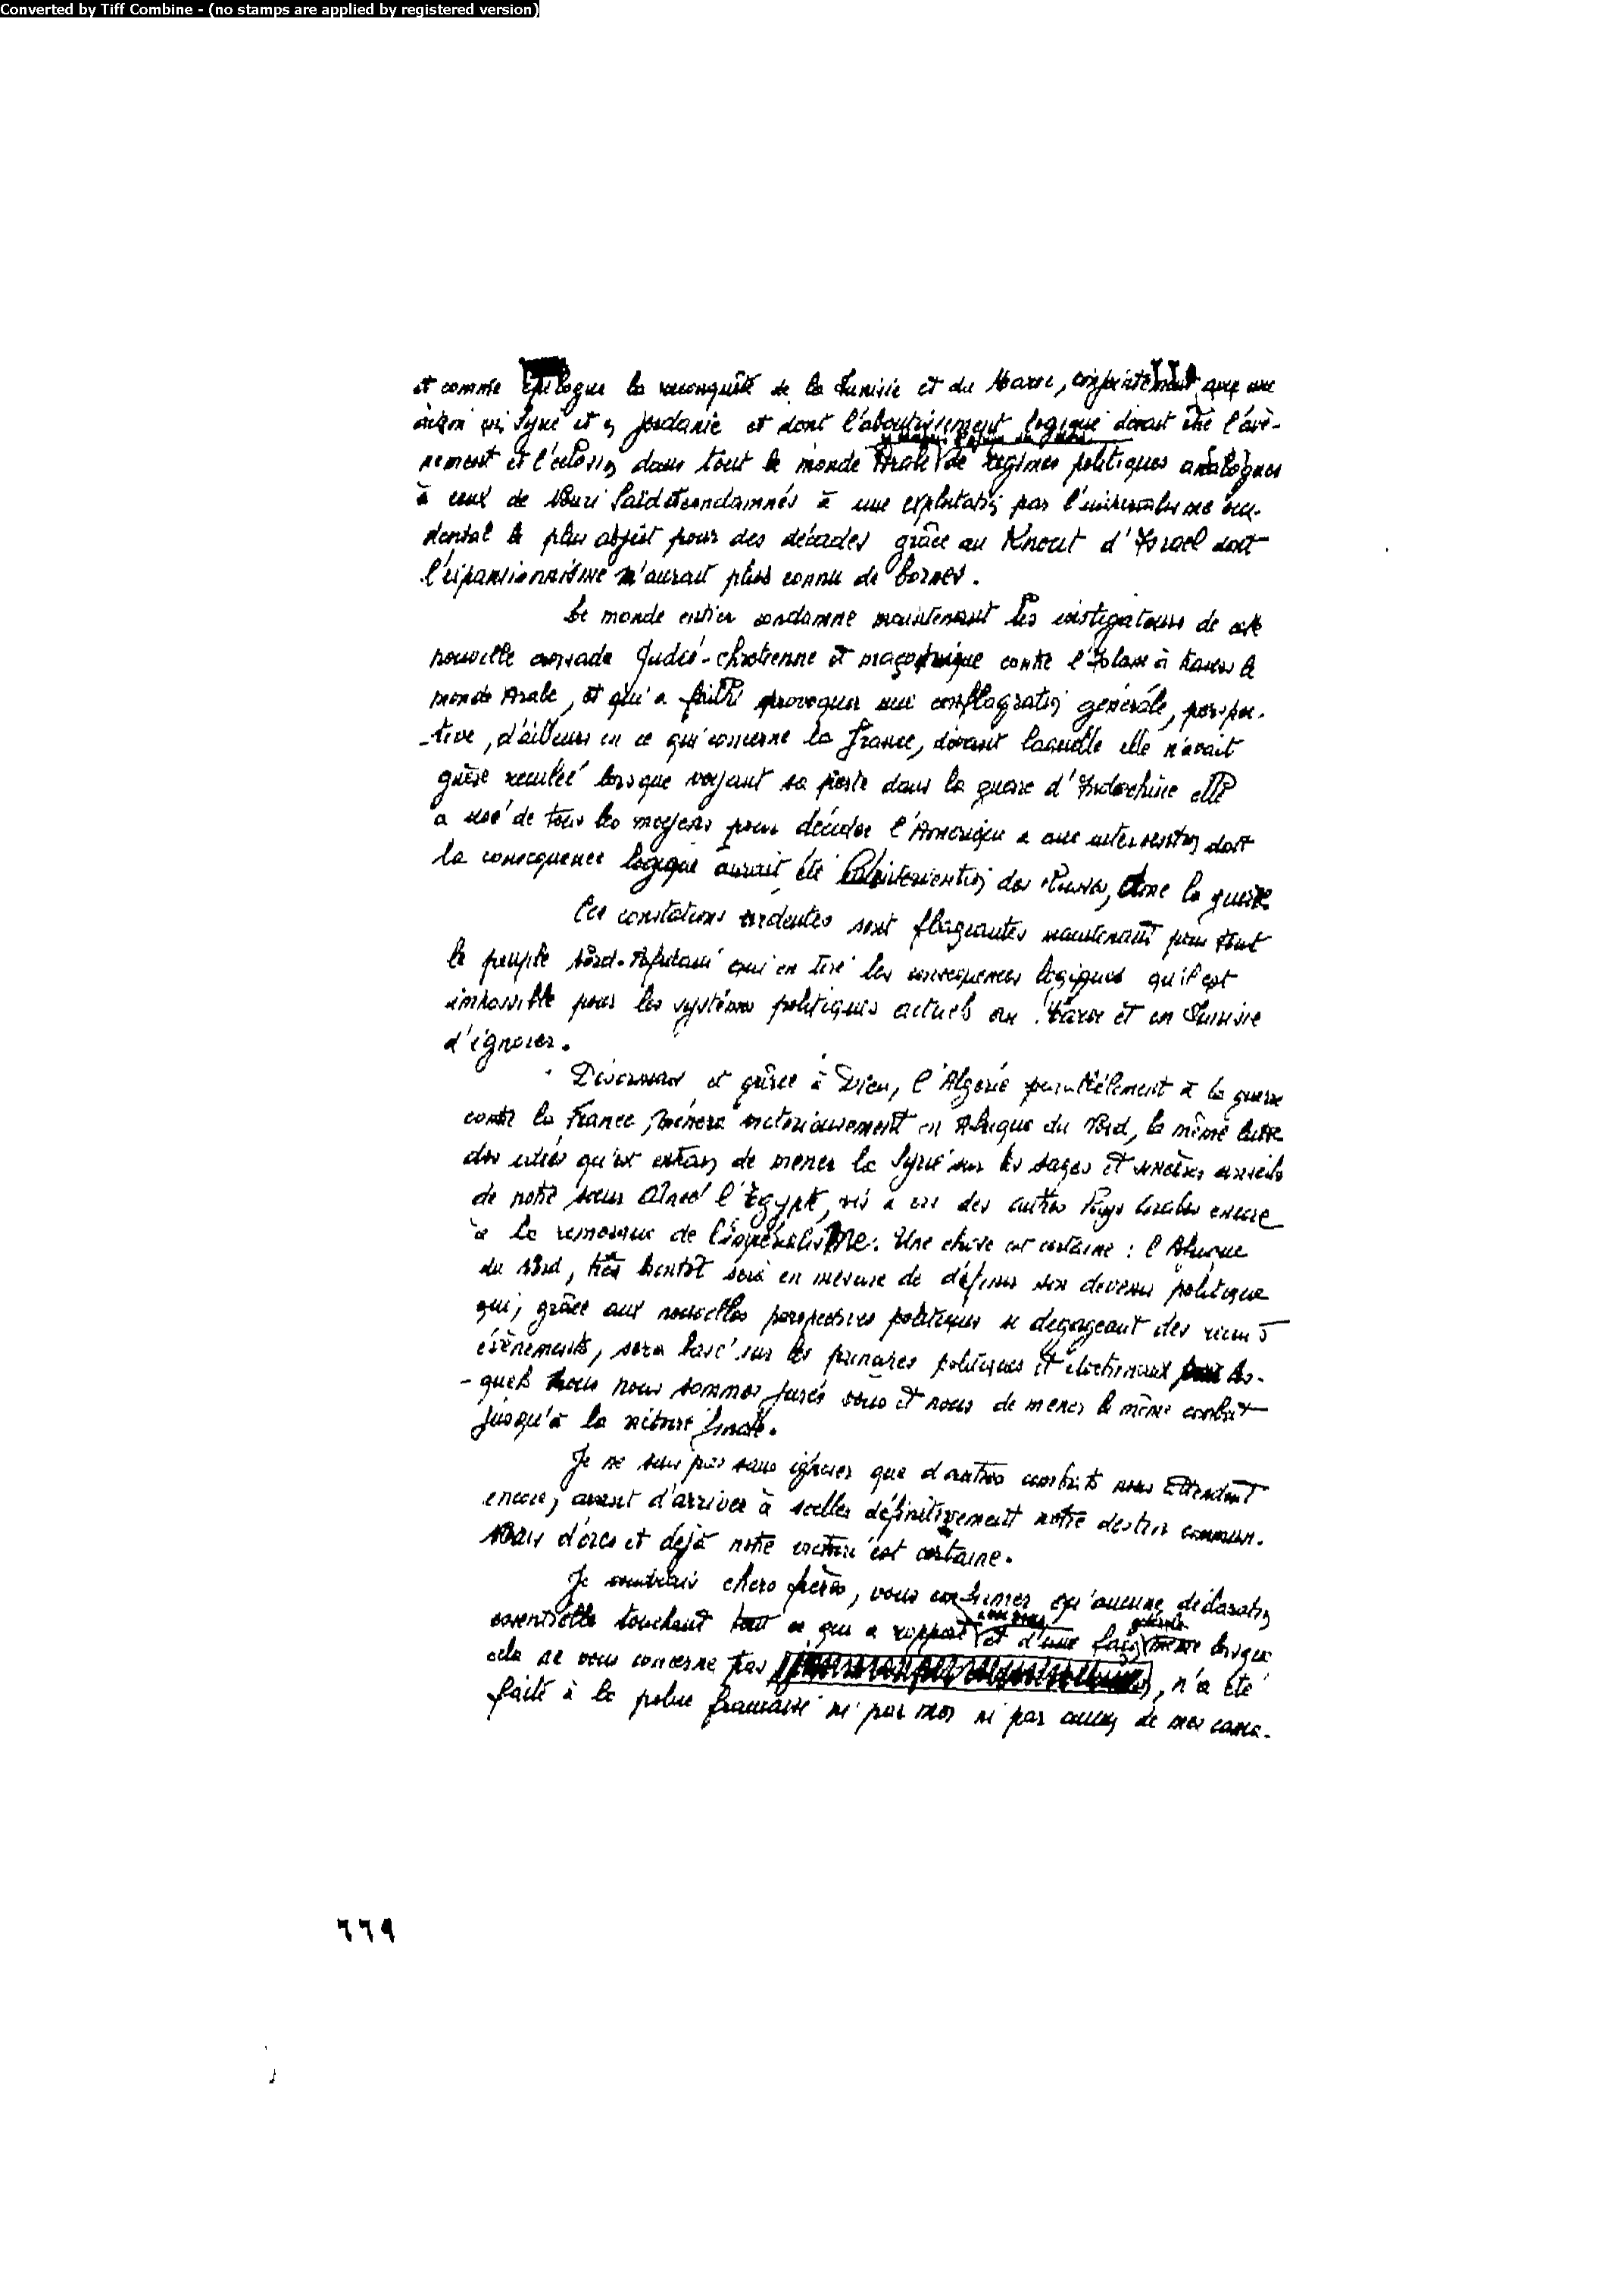 Converted by Tiff Combine - (no stamps are applied by registered version)
et comme épilogue la reconquête de la Tunisie et du Maroc, conjointement avec une
action en Syrie et en Jordanie et dont l'aboutissement logique devait être l'avè-
nement et l'éclosion dans tout le monde Arabe de régimes politiques analogues
à ceux de Nouri Saïd et condamnés à une exploitation par l'impérialisme occi-
dental le plus abject pour des décades grâce au Knout d'Israel dont
l'expansionnisme n'aurait plus connu de bornes.
Le monde entier condamne maintenant les instigateurs de cette
nouvelle croisade Judéo-chrétienne et maçonnique contre l'Islam à travers le
monde Arabe, et qui a failli provoquer une conflagration générale, perspec-
-tive, d'ailleurs en ce qui concerne la France, devant laquelle elle n'avait
guère reculé lorsque voyant sa perte dans la guerre d'Indochine elle
a usé de tous les moyens pour décider l'Amérique à une intervention dont
la conséquence logique aurait été l'intervention des Russes, donc la guerre
Ces constations évidentes sont flagrantes maintenant pour tout
le peuple Nord-Africain qui en tire les conséquences logiques qu'il est
impossible pour les systèmes politiques actuels au Maroc et en Tunisie
d'ignorer.
Désormais et grâce à Dieu, l'Algérie parallèlement à la guerre
contre la France, mènera victorieusement en Afrique du Nord, la même lutte
des idées qu'est entrain de mener la Syrie sur les sages et sincères conseils
de notre soeur aînée l'Egypte, vis à vis des autres Pays Arabes encore
à la remorque de l'impérialisme. Une chose est certaine : l'Afrique
du Nord, très bientôt sera en mesure de définir son devenir politique
qui, grâce aux nouvelles perspectives politiques se dégageant des récents
évènements, sera basé sur les principes politiques et doctrinaux les-
-quels nous nous sommes jurés vous et nous de mener le même combat
jusqu'à la victoire finale.
Je ne suis pas sans ignorer que d'autres combats nous attendent
encore, avant d'arriver à sceller définitivement notre destin commun.
Mais d'ores et déjà notre victoire est certaine.
Je voudrais chers frères, vous confirmer qu'aucune déclaration
essentielle touchant tout ce qui a rapport avec vous et d'une façon générale même lorsque
cela ne vous concerne pas, n'a été
faite à la police française ni par moi ni par aucun de mes cama-
٦٦٩